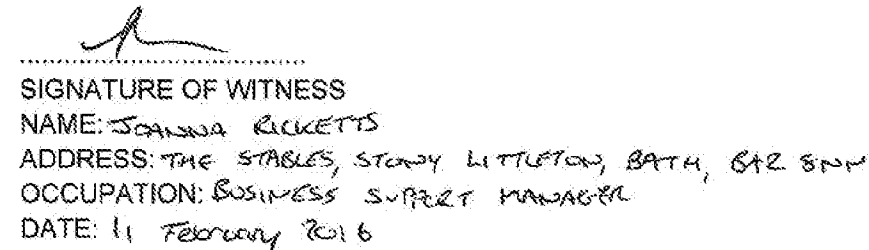 SIGNATURE OF WITNESS
NAME: JOANNA RICKETTS
ADDRESS: THE STABLES, STONY LITTLETON, BATH, BA2 8NN
OCCUPATION: BUSINESS SUPPORT MANAGER
DATE: 11 February 2016